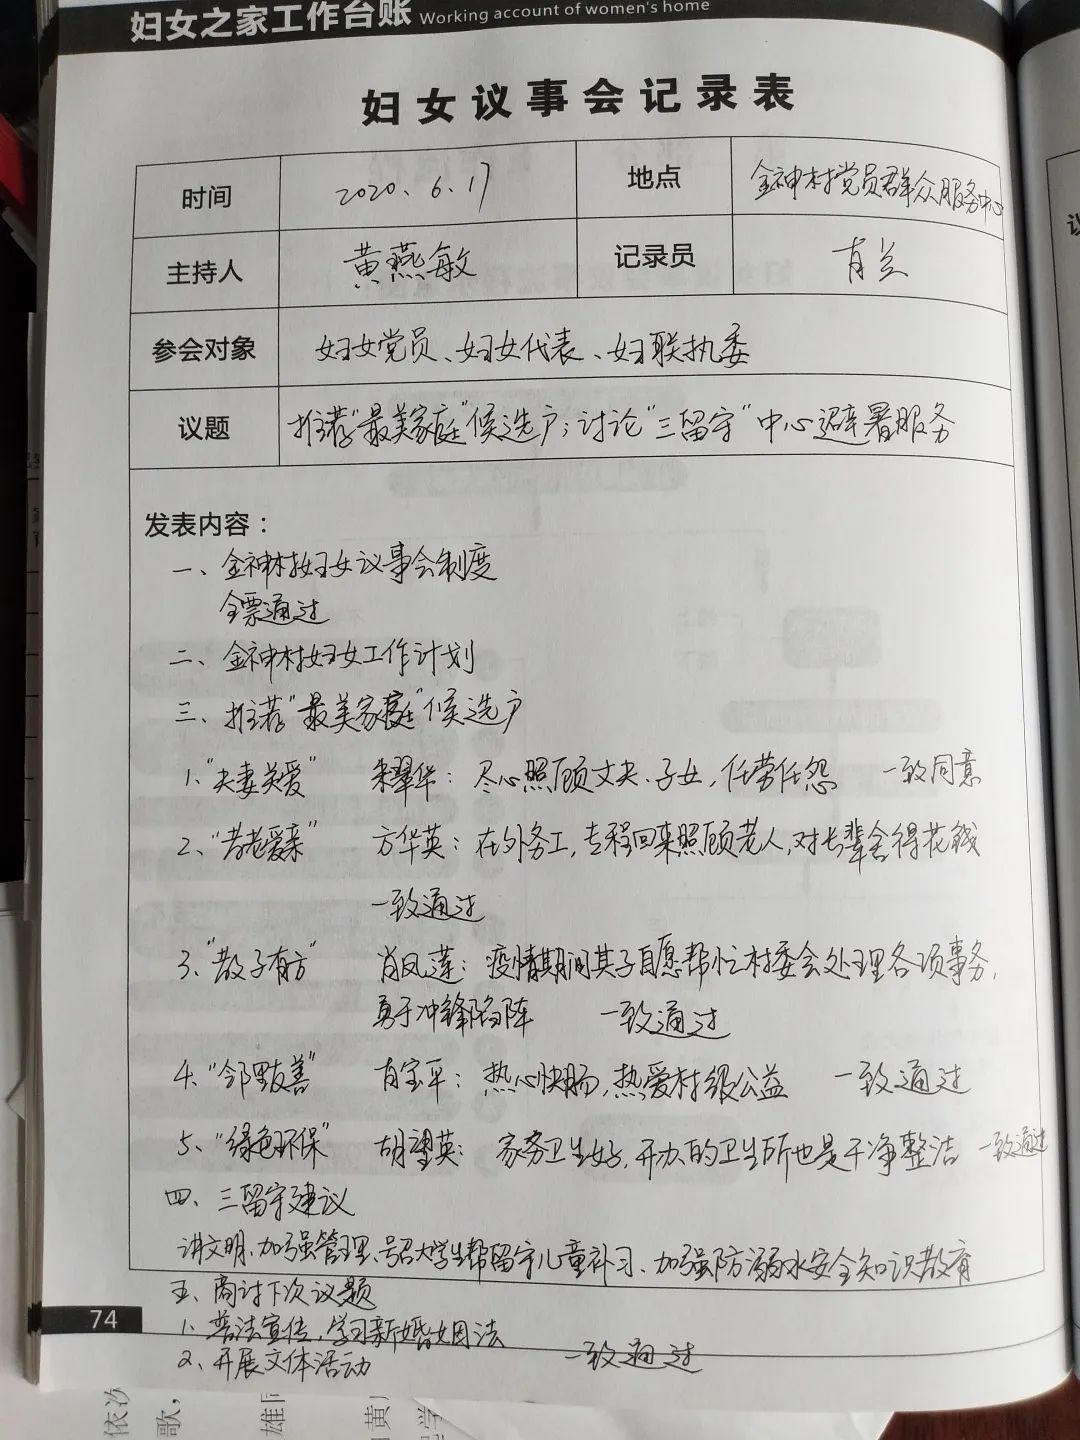 妇女之家工作台账 Working account of women's home
妇女议事会记录表
时间 2020.6.17 地点 金神村党员群众服务中心
主持人 黄燕敏 记录员 肖兰
参会对象 妇女党员、妇女代表、妇联执委
议题 推荐"最美家庭"候选户;讨论"三留守"中心避暑服务
发表内容:
一、金神村妇女议事会制度
全票通过
二、金神村妇女工作计划
三、推荐"最美家庭"候选户
1、"夫妻关爱" 翠华:尽心照顾丈夫、子女,任劳任怨 一致同意
2、"孝老爱亲" 方华英:在外务工,专程回来照顾老人,对长辈舍得花钱
一致通过
3、"教子有方" 肖凤莲:疫情期间其子自愿帮忙村委会处理各项事务,
勇于冲锋陷阵 一致通过
4、"邻里友善" 肖宝平:热心快肠,热爱村级公益 一致通过
5、"绿色环保" 胡望英:家务卫生好,开办的卫生所也是干净整洁 一致通过
四、三留守建议
讲文明、加强管理、号召大学生帮留守儿童补习、加强防溺水安全知识教育
五、商讨下次议题
1、普法宣传,学习新婚姻法
2、开展文体活动 一致通过
74
依沙
歌,
雄
黄
学